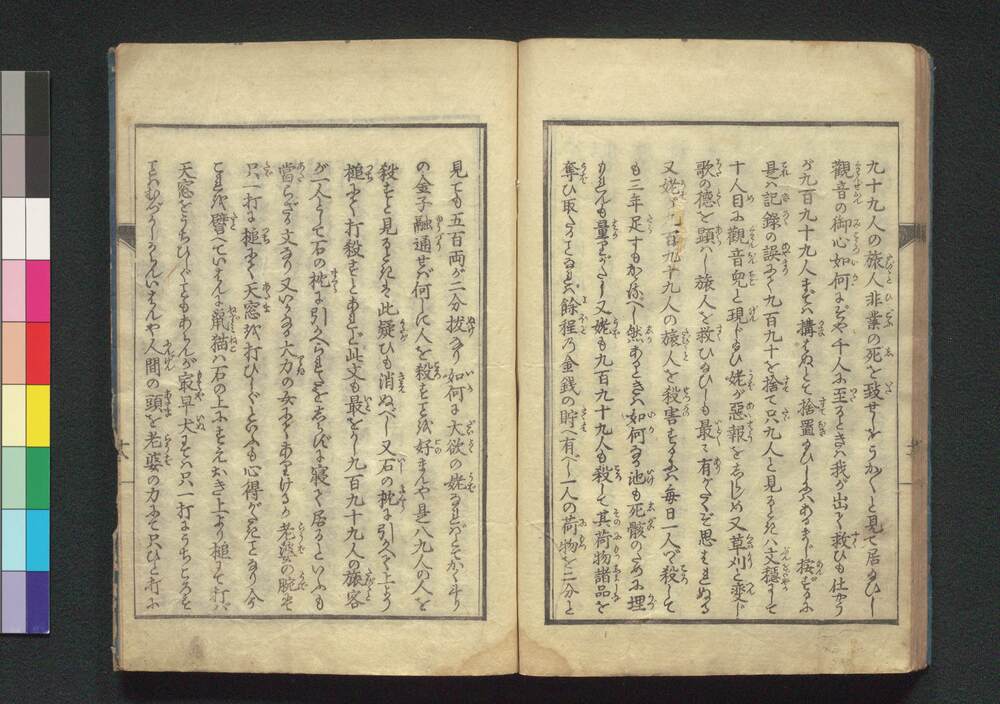 九十九人の旅人非業の死を致せしをうか／＼と見て居給ひし
観音の御心如何にぞや千人に至るときハ我が出て救ひも仕やう
が九百九十九人まではハ搆はぬとて捨置給ひしにハあるまじ按ずるに
是ハ記録の誤にて九百九十を捨て只九人と見るときハ文穏にして
十人目に観音児と現じ給ひ姥が悪報をしらしめ又草刈と変じ
歌の徳を顕ハし旅人を救ひ給ひしも最有がたくぞ思はれぬる
又姥が九百九十九人の旅人を殺害するにハ毎日一人づゝ殺して
も三年足すもかゝるべし然あるときハ如何なる池も死骸のために埋
もれんも量りがたし又姥も九百九十九人も殺して其荷物諸品を
奪ひ取たることなれバ餘程の金銭の貯へ有べし一人の荷物を二分と
見ても五百両が二分抜なり如何に大欲の姥なれバとてかく斗り
の金子融通せバ何しに人を殺すことを好まんや是八九人の人を
殺すと見るときハ此疑ひも消ぬべし又石の枕に引かへて上より
槌にて打殺すとあれど此文も最をかし九百九十九人の旅客
が一人として石の枕に引かへられたをしらずに寝て居るといふも
當らざる文なり又いかなる大力の女にてありけるか老婆の腕にて
只一打に槌にて天窓を打ひしぐといふも心得がたきことなり今
これを譬へていはんに鼠猫ハ石の上にすえおき上より槌にて打バ
天窓をうちひしぐこともあらんが最早犬にてハ只一打にうちころす
ことハむづかしからんいはんや人間の頭を老婆の力にて只ひと打に